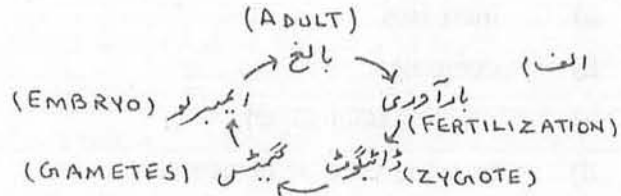 (ADULT)
بالغ
(الف)
(EMBRYO) ایمبریو بارآوری
(FERTILIZATION)
(GAMETES) گمیٹس زائیگوٹ (ZYGOTE)